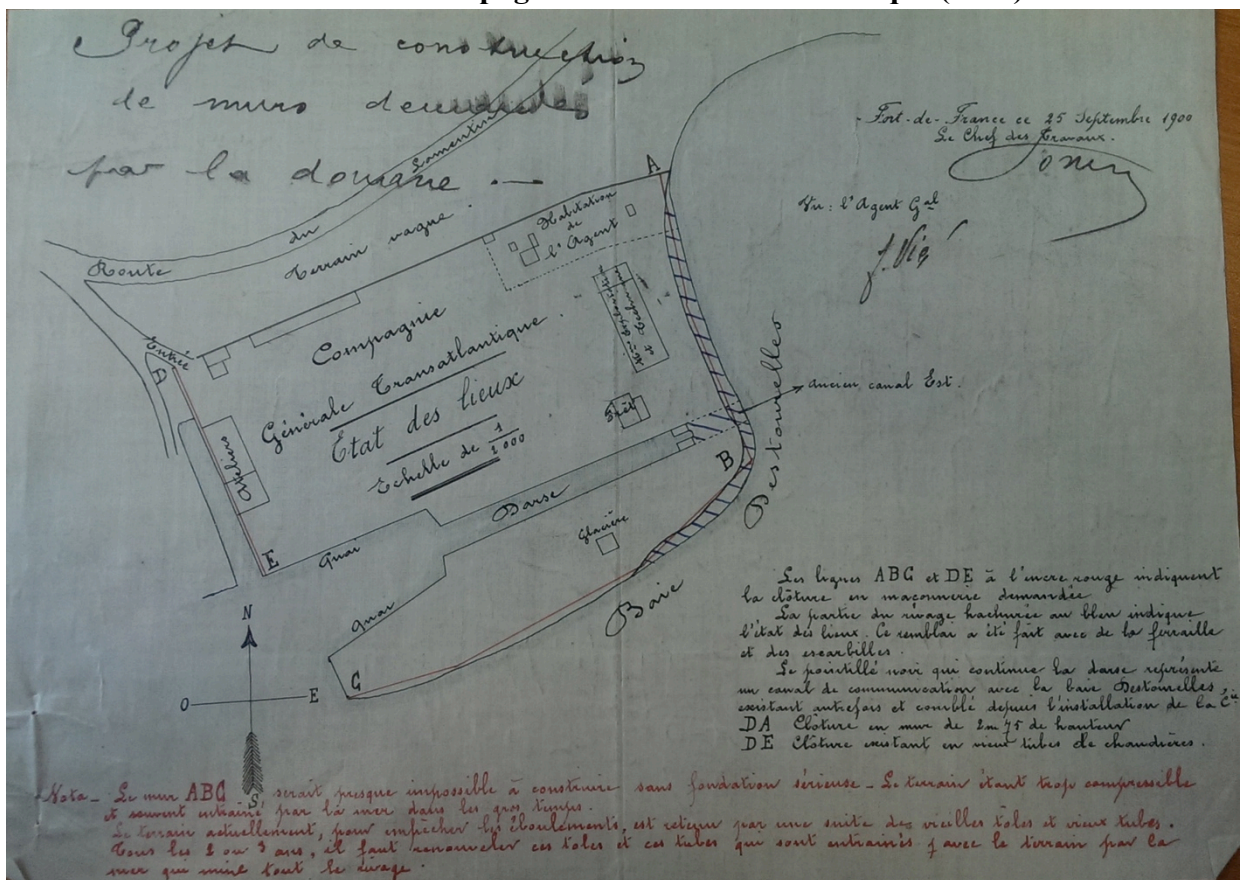 Projet de construction
de murs demandés
par la douane . —
Fort-de-France ce 25 Septembre 1900
Le Chef des Travaux.
Vu : l'Agent Gal
Route
du
Lamentin
Terrain vague.
Entrée
A
Habitation
de
l'Agent
Compagnie
Générale Transatlantique.
Etat des lieux
Echelle de 1/2000
et
Frêt
Ateliers
D
E
Quai
Darse
Glacière
Quai
B
C
ancien canal Est.
Baie Destourelles
N
O
E
S.
Les lignes ABC et DE à l'encre rouge indiquent
la clôture en maçonnerie demandée
La partie du rivage hachurée au bleu indique
l'état des lieux. Ce remblai a été fait avec de la ferraille
et des escarbilles.
Le pointillé noir qui continue la darse représente
un canal de communication avec la baie Destourelles,
existant autrefois et comblé depuis l'installation de la Cie
DA Clôture en mur de 2m75 de hauteur
DE Clôture existant en vieux tubes de chaudières.
Nota - Le mur ABC serait presque impossible à construire sans fondation sérieuse - Le terrain étant trop compressible
et souvent entrainé par la mer dans les gros temps.
Le terrain actuellement, pour empêcher les éboulements, est retenu par une suite de vieilles tôles et vieux tubes.
Tous les 2 ou 3 ans, il faut renouveler ces tôles et ces tubes qui sont entrainés avec le terrain par la
mer qui mine tout le rivage.